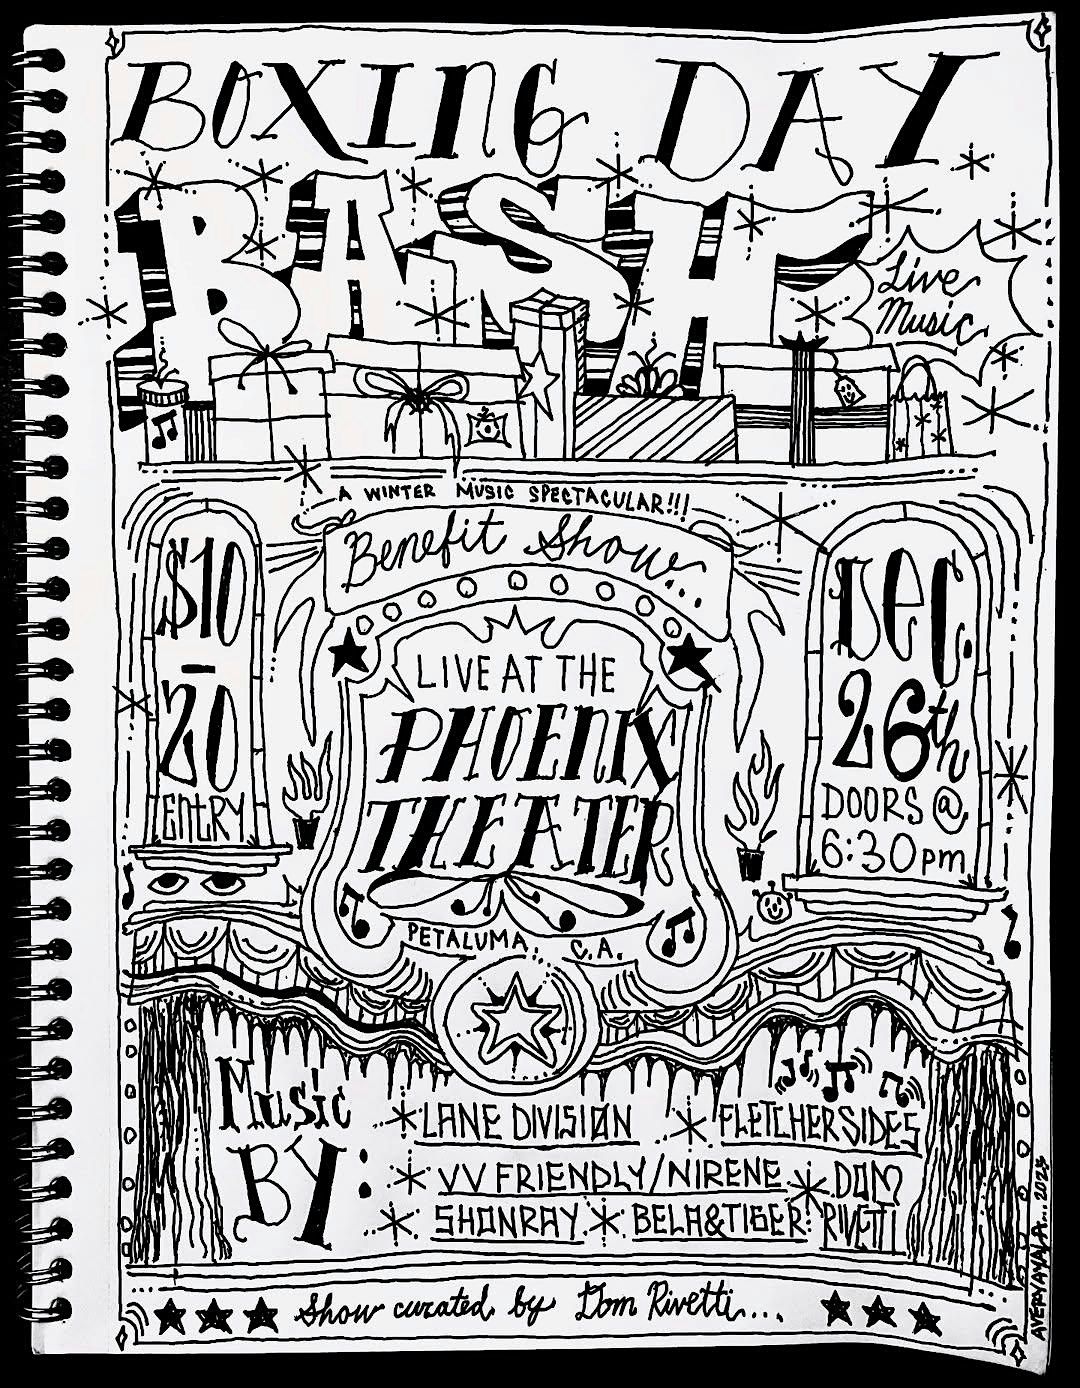 BOXING DAY
BASH
Live
Music
A WINTER MUSIC SPECTACULAR!!!
Benefit Show...
$10
-
20
ENTRY
LIVE AT THE
PHOENIX
THEATER
PETALUMA, C.A.
DEC.
26th
DOORS @
6:30pm
Music
BY:
LANE DIVISION
FLETCHER SIDES
VV FRIENDLY/NIRENE
DOM
RIVETTI
SHONRAY
BELA&TIGER
Show curated by Dom Rivetti...
AVERY AYALA...2023